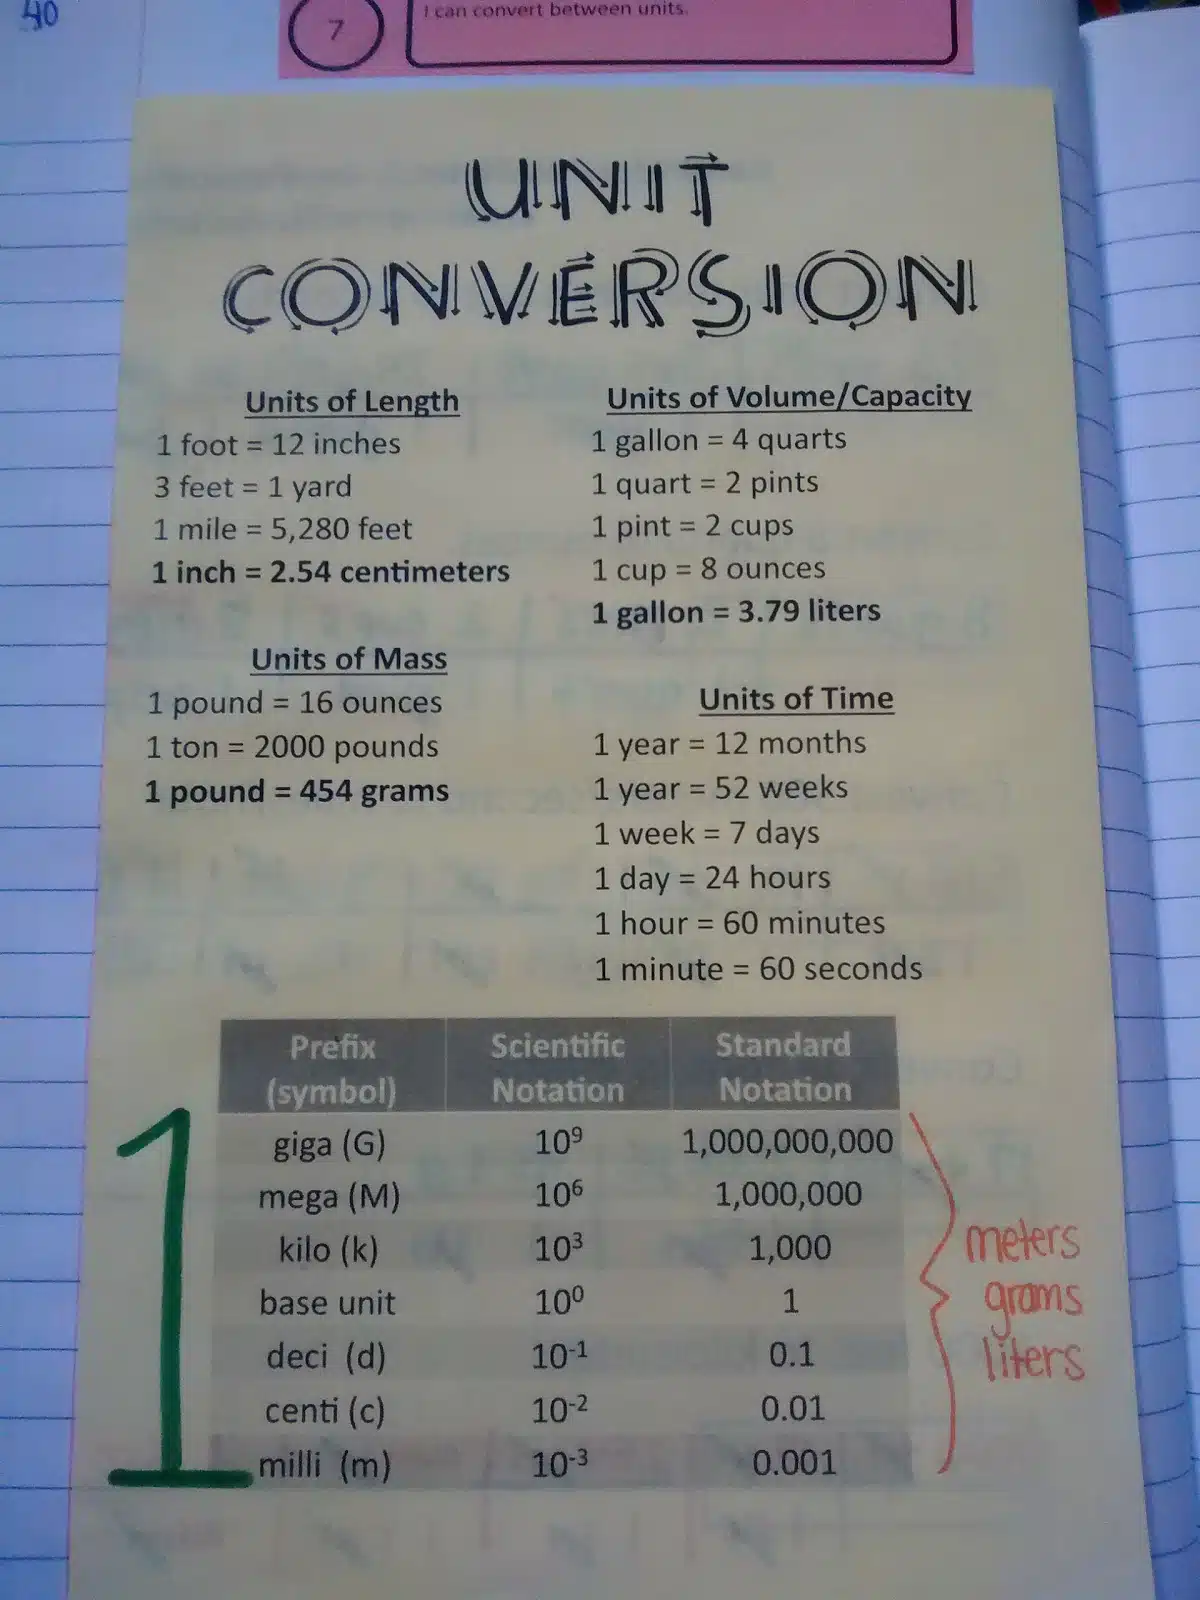 40
7
I can convert between units.
UNIT
CONVERSION
Units of Length
1 foot = 12 inches
3 feet = 1 yard
1 mile = 5,280 feet
1 inch = 2.54 centimeters
Units of Mass
1 pound = 16 ounces
1 ton = 2000 pounds
1 pound = 454 grams
Units of Volume/Capacity
1 gallon = 4 quarts
1 quart = 2 pints
1 pint = 2 cups
1 cup = 8 ounces
1 gallon = 3.79 liters
Units of Time
1 year = 12 months
1 year = 52 weeks
1 week = 7 days
1 day = 24 hours
1 hour = 60 minutes
1 minute = 60 seconds
Prefix (symbol) Scientific Notation Standard Notation
giga (G) 10⁹ 1,000,000,000
mega (M) 10⁶ 1,000,000
kilo (k) 10³ 1,000
base unit 10⁰ 1
deci (d) 10⁻¹ 0.1
centi (c) 10⁻² 0.01
milli (m) 10⁻³ 0.001
1
meters
grams
liters